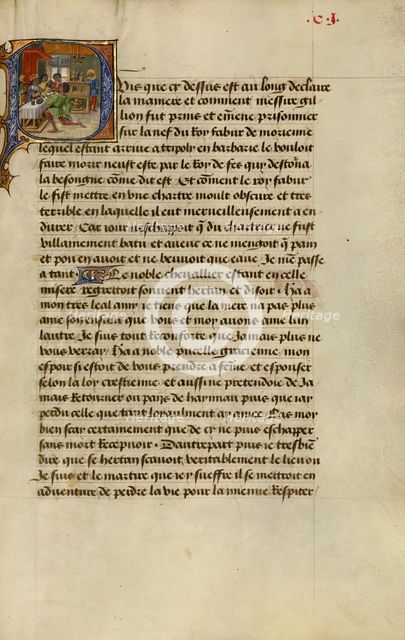 .C.J.
Puis que cy dessus est au long declaire
la maniere et comment messire gil
lion fut prins et emene prisonnier
sur la nef du Roy fabur de morienne
lequel estant arrive a tripoly en barbarie le vouloit
faire morir neust este par le Roy de fes qui destorna
la besongne come dit est Et coment le roy fabur
le fist mettre en une chartre moult obscure et tres
terrible en laquelle il eut merveilleusement a en
durer Car iour neschappoit q du chartrier ne fust
villainement batu et avecq ce ne mengoit q pain
et pou en avoit et ne buvoit que eaue Je men passe
a tant Ce noble chevallier estant en celle
misere regretoit souvent hertan et disoit Ha a
mon tres leal amy Je tiens que la mere na pas plus
ame son enfant que vous et moy avons ame lun
lautre Je suis tout Reconforte que Jamais plus ne
vous verray Ha a noble pucelle gracienne mon
espoir si estoit de vous prendre a feme et espouser
selon la loy crestienne et aussi ne pretendoie de Ja
mais Retourner ou pays de haynnau puis que iay
perdu celle que tant loyaulment aymoie Las moy
bien scay certainement que de cy ne puis eschapper
sans mort Recepvoir Dautrepart puis ie tresbien
dire que se hertan scavoit veritablement le lieu ou
Je suis et le martire que iey sueffre il se mettroit en
adventure de perdre la vie pour la mienne Respiter
heritage